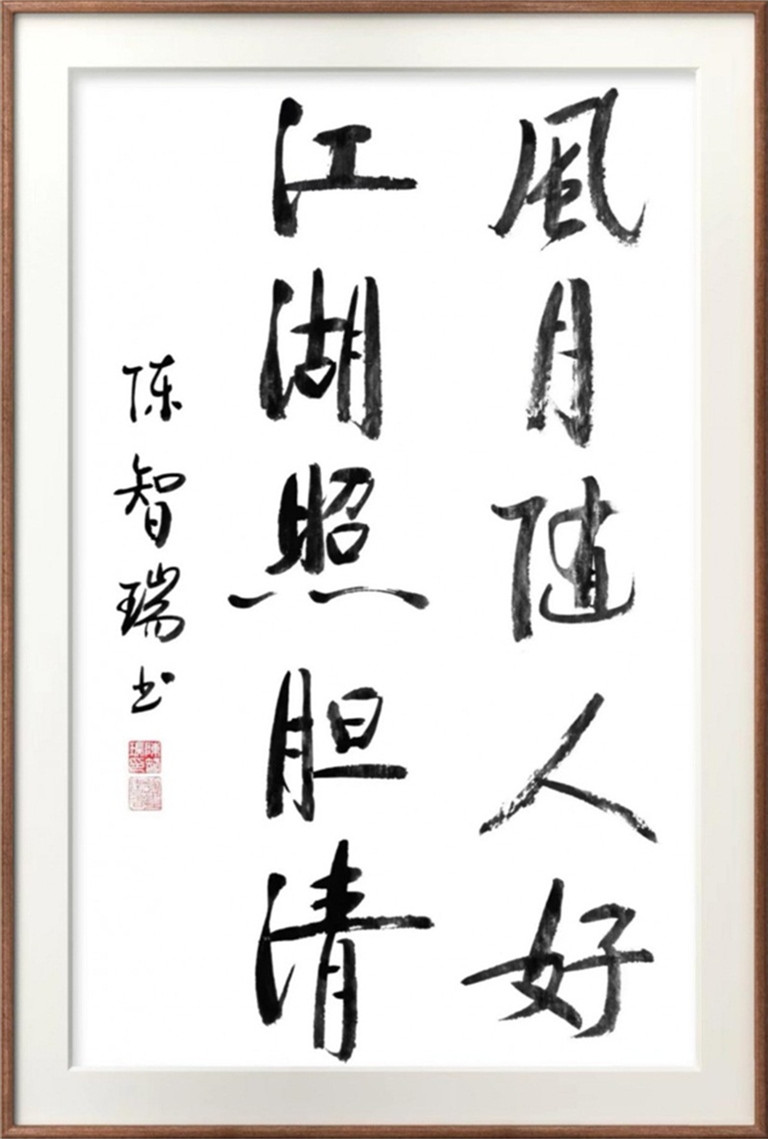 風月随人好
江湖照胆清
陈智瑞书